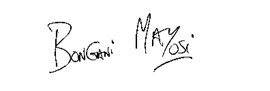 Bongani Mayosi